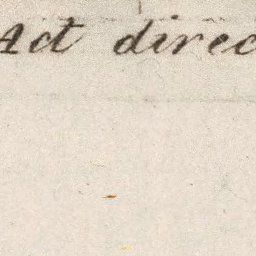 Act direc